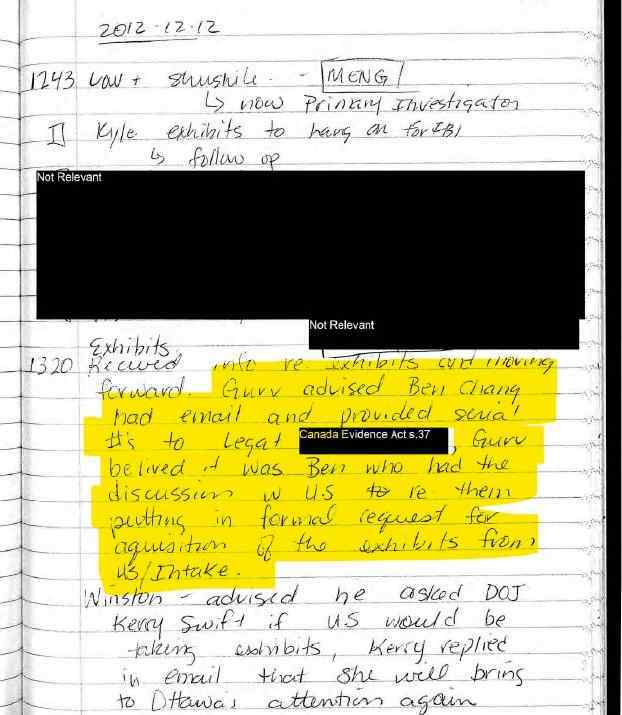 2012-12-12
1243 - MENG
↳ now Primary Investigator
Kyle exhibits to hang on for IBI
↳ follow op
Not Relevant
Not Relevant
Exhibits
1320 Recieved info re. exhibits and moving
forward. Gurv advised Ben Chang
had email and provided serial
#'s to Legat Canada Evidence Act s.37, Gurv
belived it was Ben who had the
discussion w US to re them
putting in formal request for
aquisition of the exhibits from
us/Intake.
Winston - advised he asked DOJ
Kerry Swift if US would be
taking exhibits, Kerry replied
in email that she will bring
to Ottawa's attention again